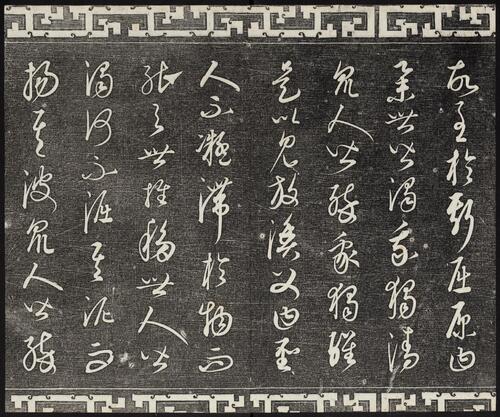 故至於斯屈原曰
舉世皆濁我獨清
眾人皆醉我獨醒
是以見放漁父曰聖
人不凝滯於物而
能與世推移世人皆
濁何不淈其泥而
揚其波眾人皆醉